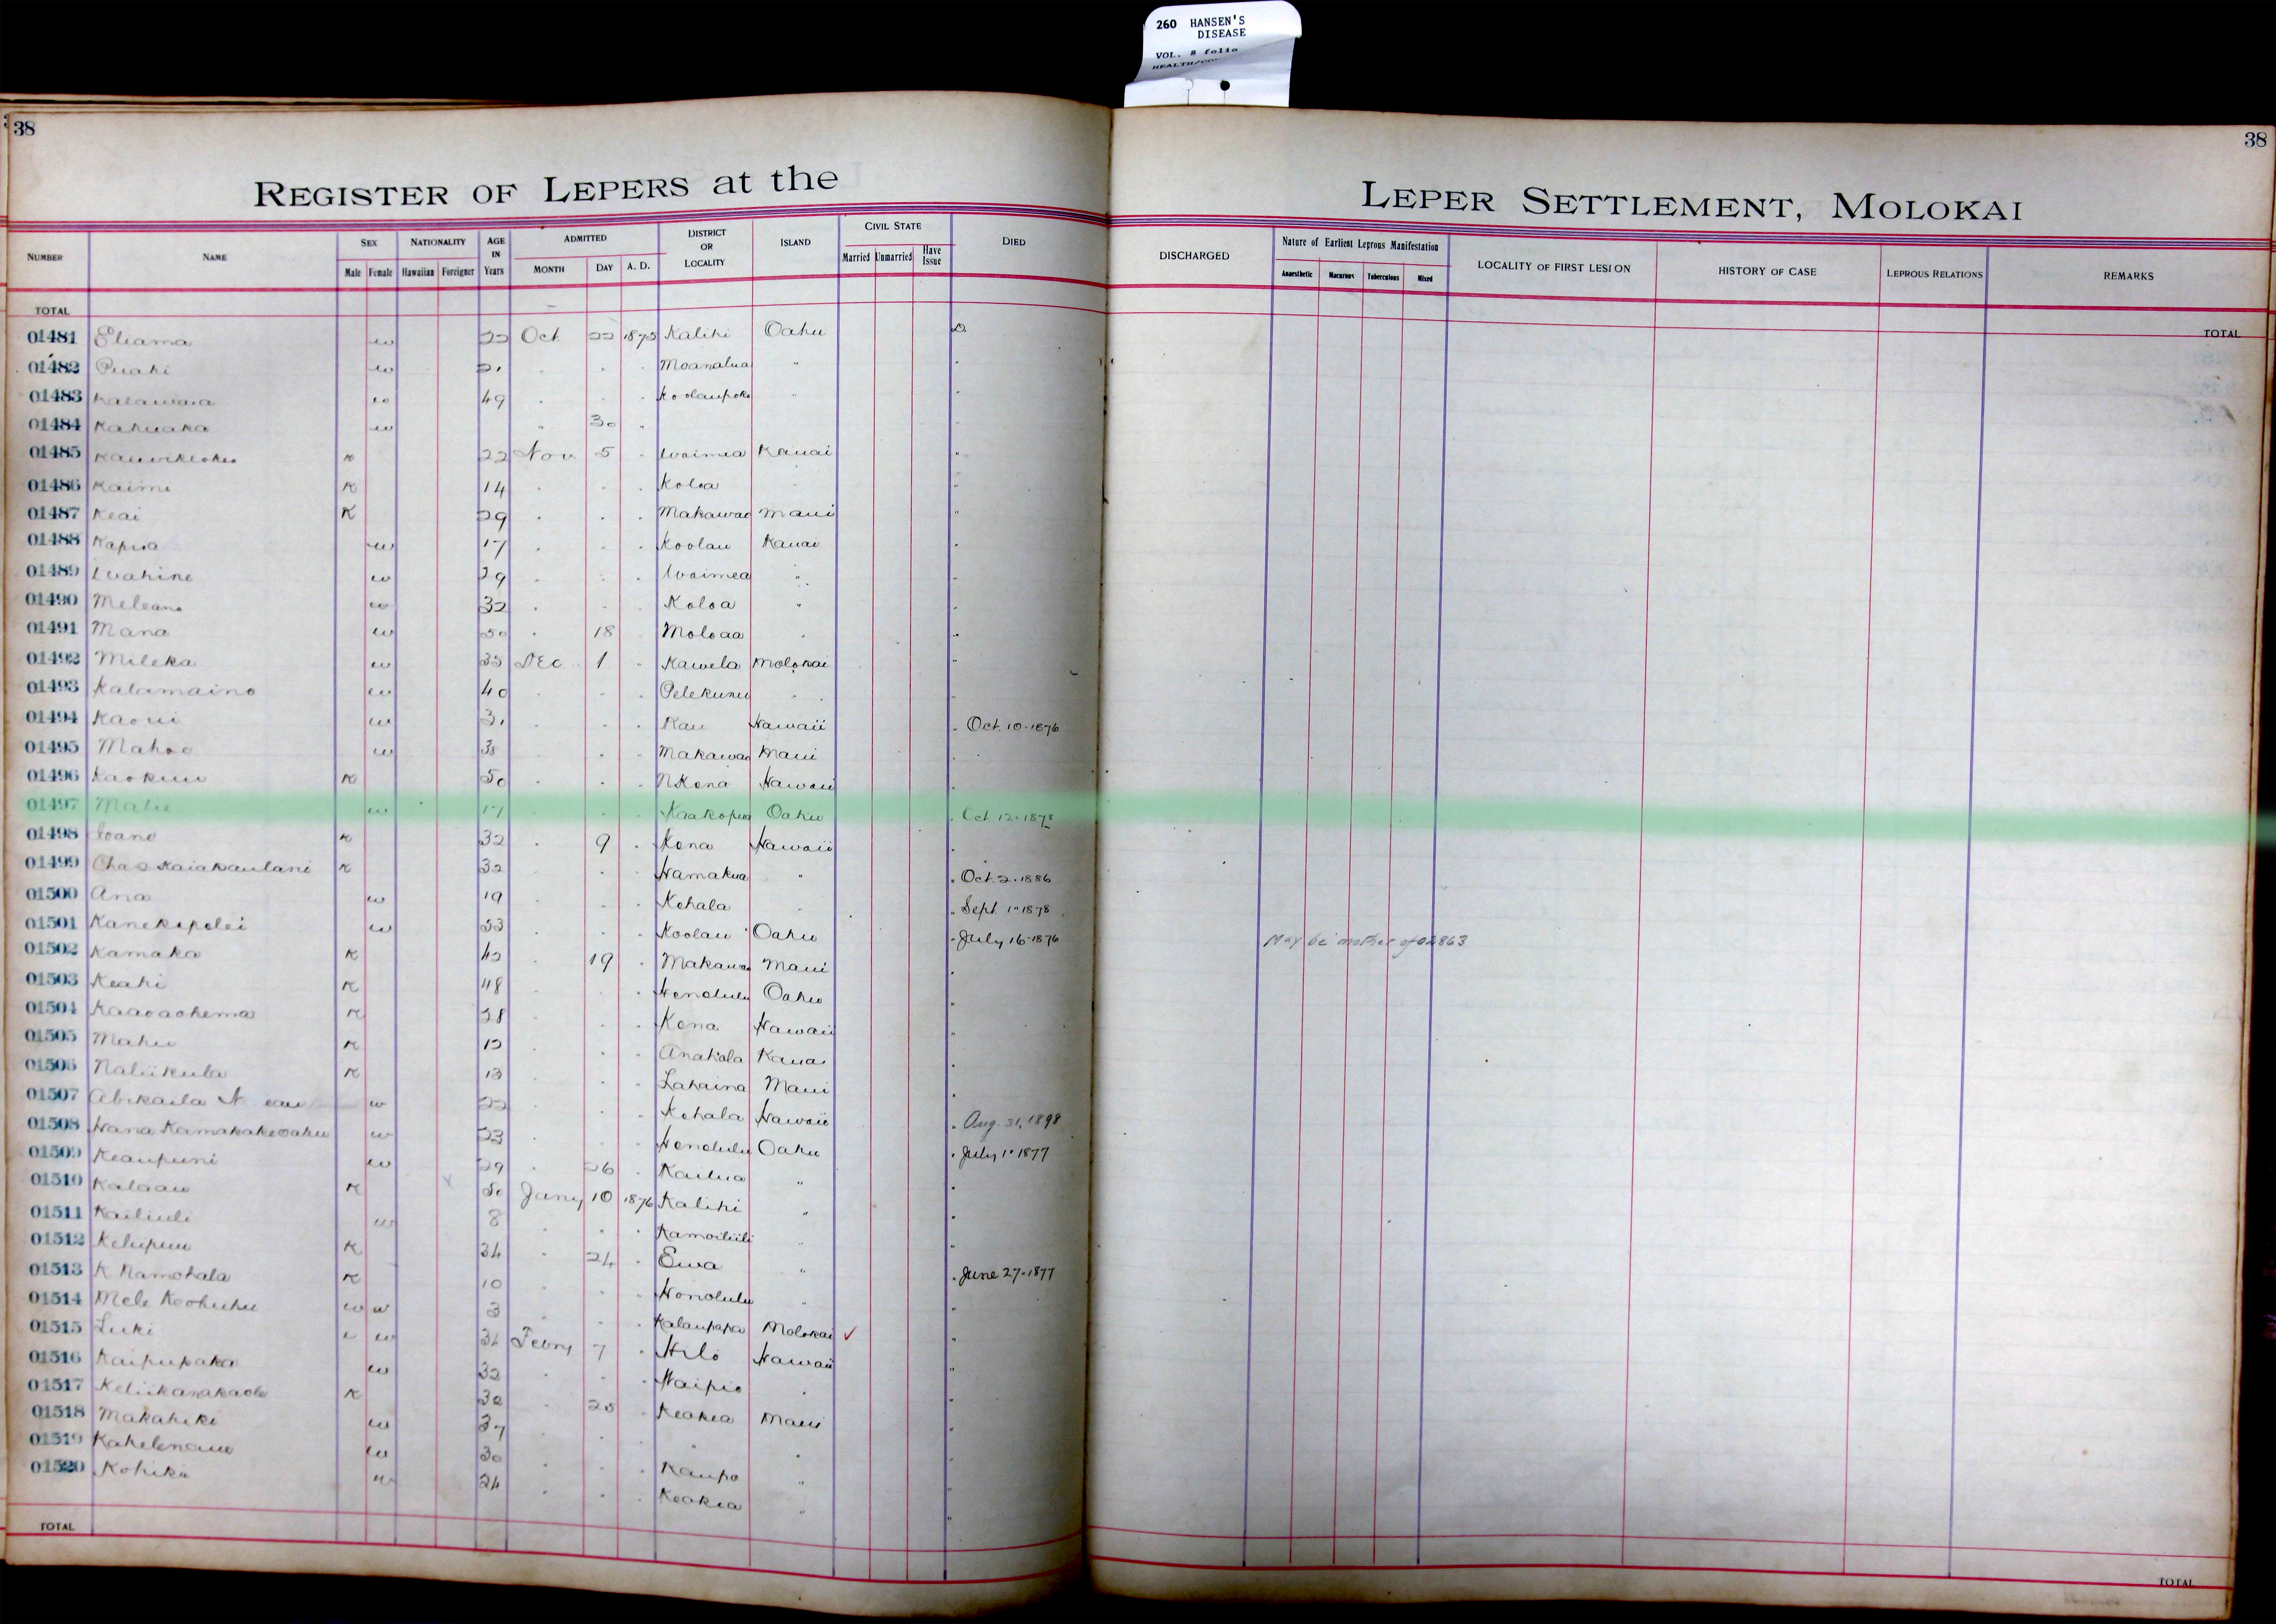 260 HANSEN'S
DISEASE
VOL. 8 folio
38
38
REGISTER OF LEPERS at the LEPER SETTLEMENT, MOLOKAI
NUMBER NAME SEX NATIONALITY AGE IN Years ADMITTED DISTRICT OR LOCALITY ISLAND CIVIL STATE DIED DISCHARGED Nature of Earliest Leprous Manifestation LOCALITY OF FIRST LESION HISTORY OF CASE LEPROUS RELATIONS REMARKS
Male Female Hawaiian Foreigner MONTH DAY A. D. Married Unmarried Have Issue Anaesthetic Macurous Tuberculous Mixed
TOTAL TOTAL
01481 Eliama w 22 Oct 22 1875 Kalihi Oahu D
01482 Puahi w 21 " " " Moanalua "
01483 w 49 " " " Koolaupoko "
01484 Kahuaka w " 30 "
01485 K 22 Nov 5 " Waimea Kauai "
01486 Kaimi K 14 " " " Koloa "
01487 Keai K 29 " " " Makawao Maui "
01488 w 17 " " " Koolau Kauai "
01489 Wahine w 29 " " " Waimea " "
01490 Meleana w 32 " " " Koloa " "
01491 Mana w 50 " 18 Moloaa " "
01492 Mileka w 35 Dec 1 " Kawela Molokai "
01493 Kalamaino w 40 " " " Pelekunu " "
01494 Kaoui w 31 " " " Kau Hawaii " Oct. 10-1876
01495 Mahoe w 38 " " Makawao Maui "
01496 Kaokuu K 50 " " " N Kona Hawaii "
01497 Malie w 17 " " " Kaakopua Oahu " Oct 12-1878
01498 Ioane K 32 " 9 " Kona Hawaii "
01499 Chas Kaiakaulani K 32 " " " Hamakua " " Oct. 2. 1886
01500 Ana w 19 " " " Kohala " " Sept 1" 1878
01501 Kanekapolei w 53 " " " Koolau Oahu " July 16-1876 May be mother of 02863
01502 Kamaka K 42 " 19 " Makawao Maui "
01503 Keahi K 48 " " " Honolulu Oahu "
01504 Kaaoaohema K 28 " " " Kona Hawaii "
01505 Mahu K 12 " " " Anahola Kauai "
01506 Naliikula K 13 " " " Lahaina Maui "
01507 Abikaila w 22 " " " Kohala Hawaii " Aug. 31, 1898
01508 Hana Kamakakeoahu w 23 " " " Honolulu Oahu " July 1" 1877
01509 Keaupuni w 29 " 26 " Kailua " "
01510 Kalaau K 50 Jany 10 1876 Kalihi " "
01511 Kailiuli w 8 " " " Kamoiliili " "
01512 Kelupuu K 34 " 24 " Ewa " " June 27-1877
01513 K Namohala K 10 " " " Honolulu " "
01514 Mele Keohuhu w w 3 " " " Kalaupapa Molokai ✓ "
01515 Luki w 34 Febry 7 " Hilo Hawaii "
01516 Kaipupaka w 32 " " " Waipio " "
01517 Keliikanakaole K 30 " 25 " Keokea Maui "
01518 Makahiki w 37 " " " " " "
01519 w 30 " " " Kaupo " "
01520 Kohiku w 24 " " " Keokea " "
TOTAL TOTAL